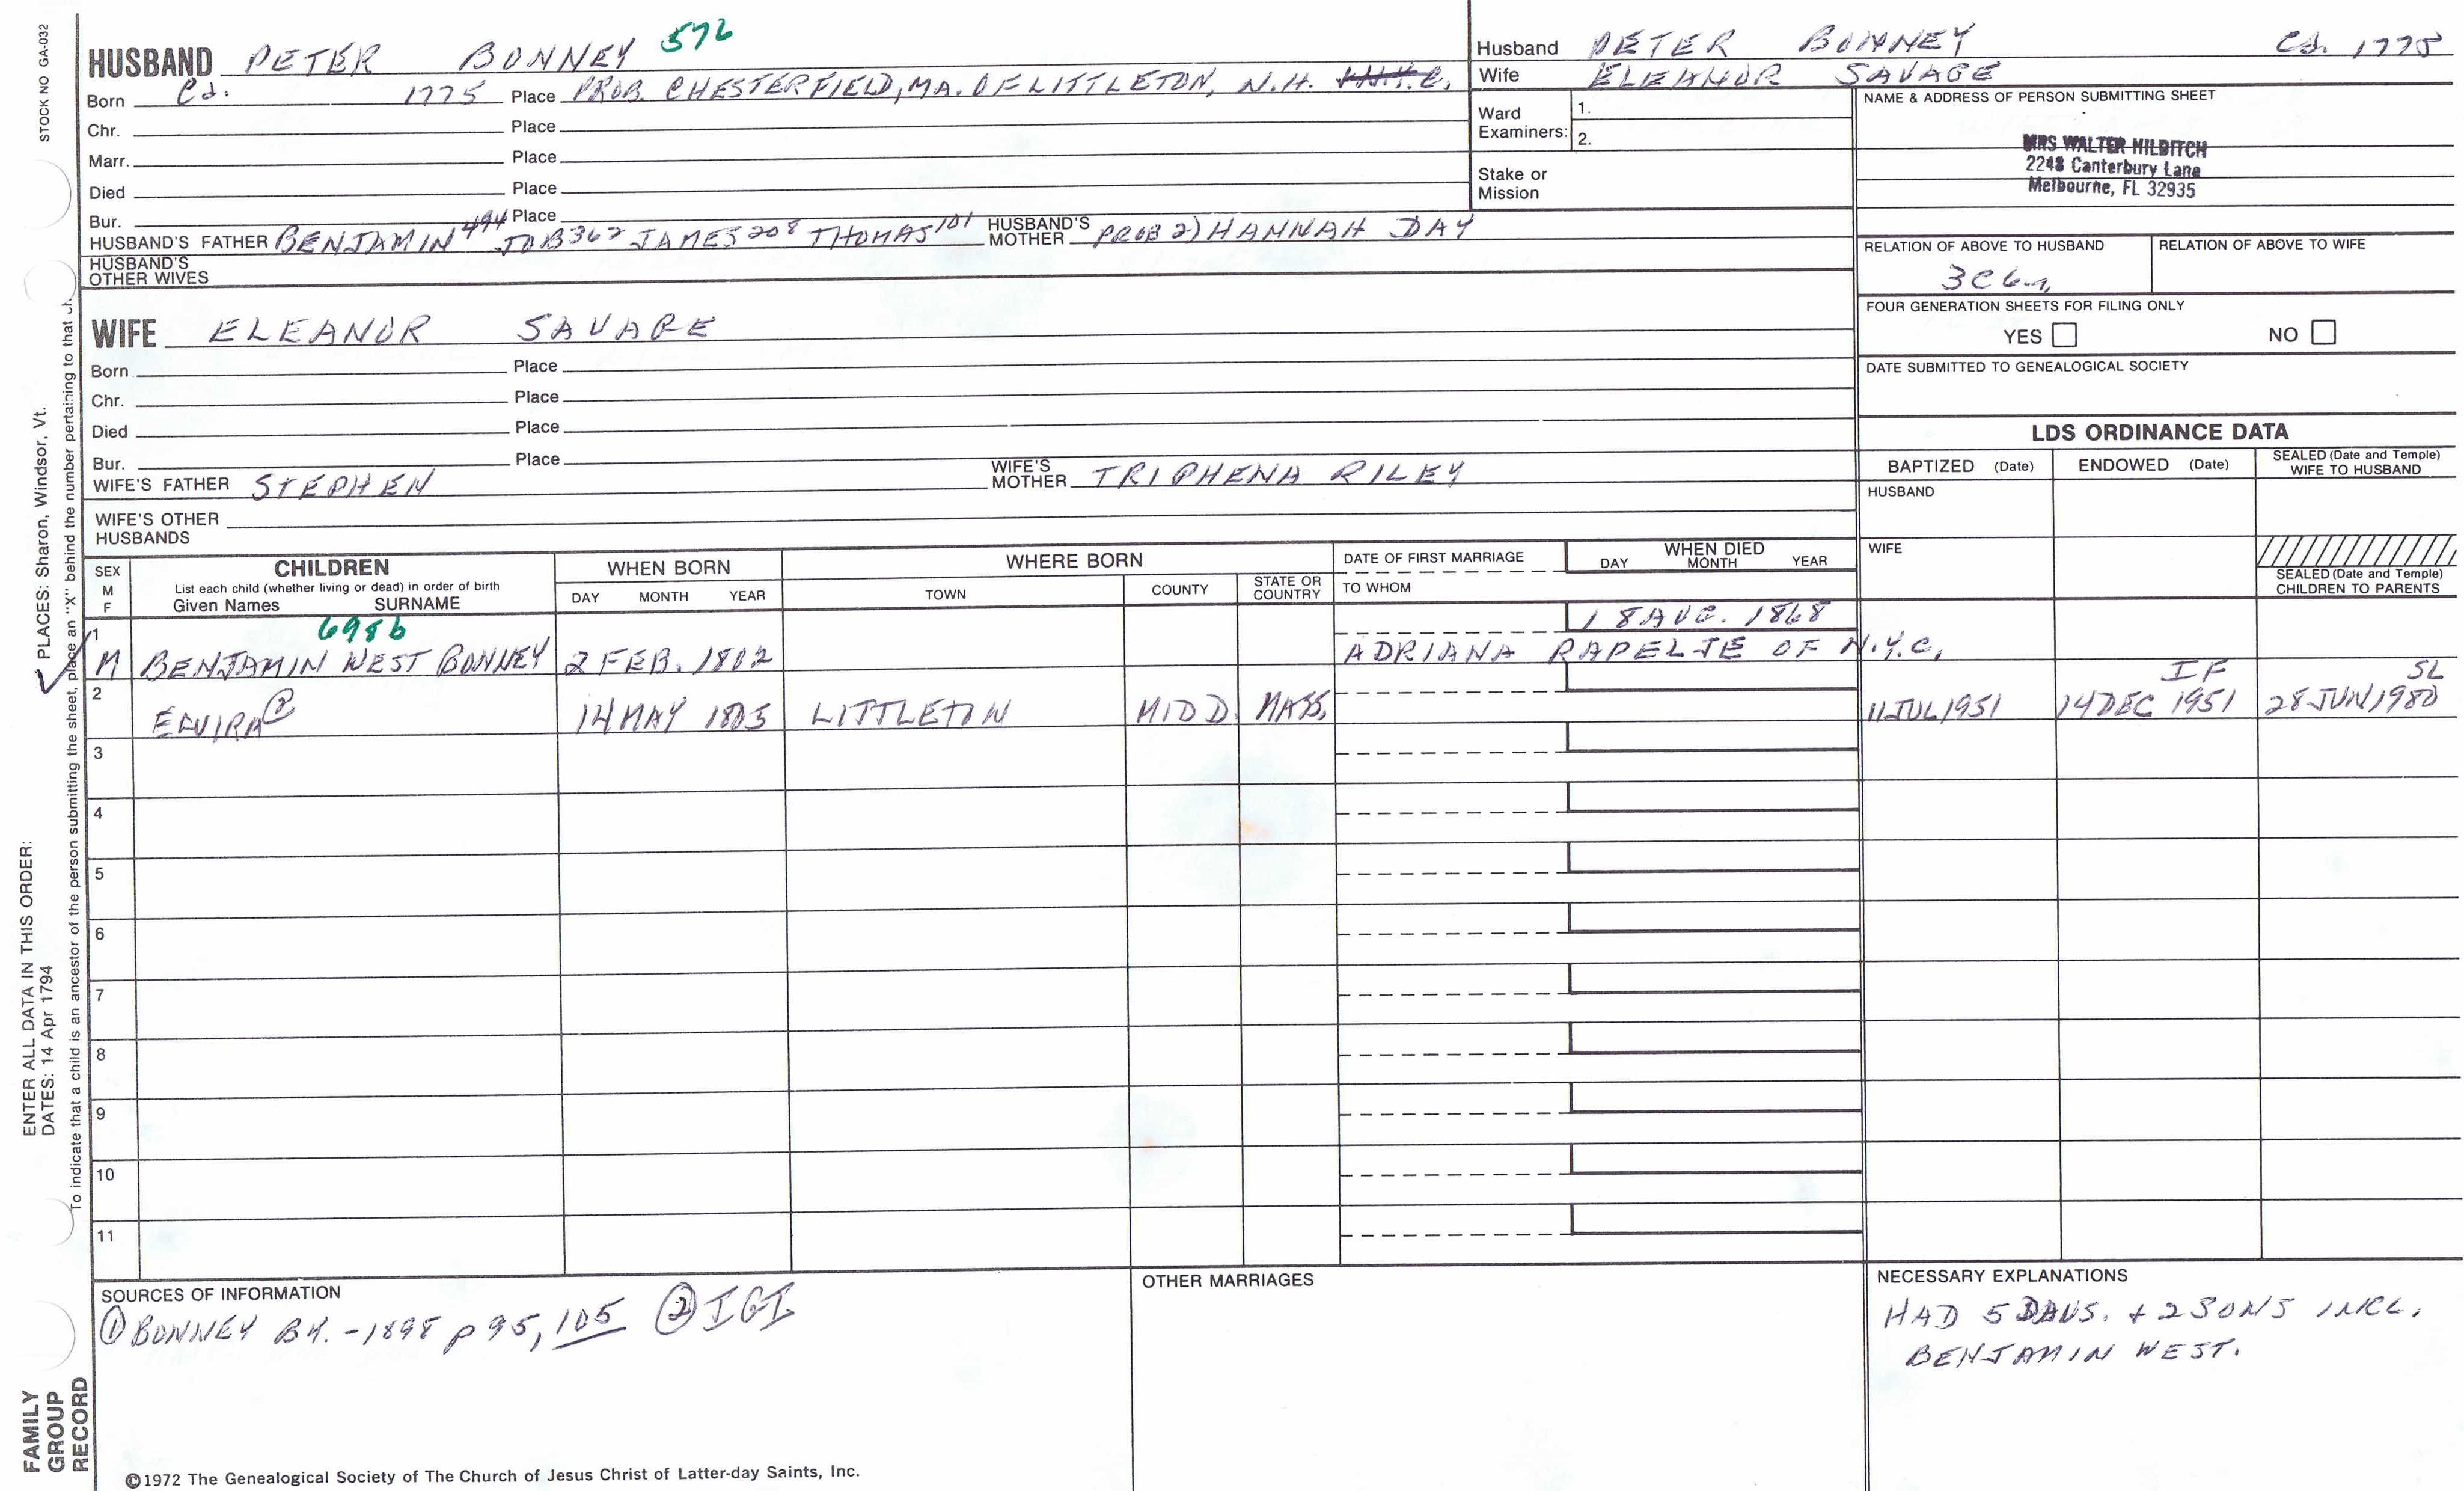 STOCK NO GA-032
HUSBAND PETER BONNEY 576
Born Ca. 1775 Place PROB. CHESTERFIELD, MA. OF LITTLETON, N.H.
Chr. Place
Marr. Place
Died Place
Bur. Place
HUSBAND'S FATHER BENJAMIN 494 JOB 362 JAMES 208 THOMAS 101 HUSBAND'S MOTHER PROB 2) HANNAH DAY
HUSBAND'S OTHER WIVES
WIFE ELEANOR SAVAGE
Born Place
Chr. Place
Died Place
Bur. Place
WIFE'S FATHER STEPHEN WIFE'S MOTHER TRIPHENA RILEY
WIFE'S OTHER HUSBANDS
Husband PETER BONNEY Ca. 1775
Wife ELEANOR SAVAGE
Ward Examiners: 1.
2.
Stake or Mission
NAME & ADDRESS OF PERSON SUBMITTING SHEET
MRS WALTER HILDITCH
2248 Canterbury Lane
Melbourne, FL 32935
RELATION OF ABOVE TO HUSBAND RELATION OF ABOVE TO WIFE
3C6
FOUR GENERATION SHEETS FOR FILING ONLY
YES NO
DATE SUBMITTED TO GENEALOGICAL SOCIETY
LDS ORDINANCE DATA
BAPTIZED (Date) ENDOWED (Date) SEALED (Date and Temple) WIFE TO HUSBAND
HUSBAND
WIFE
SEALED (Date and Temple) CHILDREN TO PARENTS
SEX M F CHILDREN WHEN BORN WHERE BORN DATE OF FIRST MARRIAGE WHEN DIED
List each child (whether living or dead) in order of birth
Given Names SURNAME DAY MONTH YEAR TOWN COUNTY STATE OR COUNTRY TO WHOM DAY MONTH YEAR
1 698b 18 AUG. 1868
M BENJAMIN WEST BONNEY 2 FEB. 1802 ADRIANA RAPELJE OF N.Y.C.
2 IF SL
ELVIRA ② 14 MAY 1805 LITTLETON MIDD. MASS. 11 JUL 1951 14 DEC 1951 28 JUN 1980
3
4
5
6
7
8
9
10
11
SOURCES OF INFORMATION
① BONNEY BK. - 1898 p 95, 105 ② IGI
OTHER MARRIAGES
NECESSARY EXPLANATIONS
HAD 5 DAUS. + 2 SONS INCL.
BENJAMIN WEST.
©1972 The Genealogical Society of The Church of Jesus Christ of Latter-day Saints, Inc.
FAMILY
GROUP
RECORD
ENTER ALL DATA IN THIS ORDER:
DATES: 14 Apr 1794
PLACES: Sharon, Windsor, Vt.
To indicate that a child is an ancestor of the person submitting the sheet, place an "X" behind the number pertaining to that